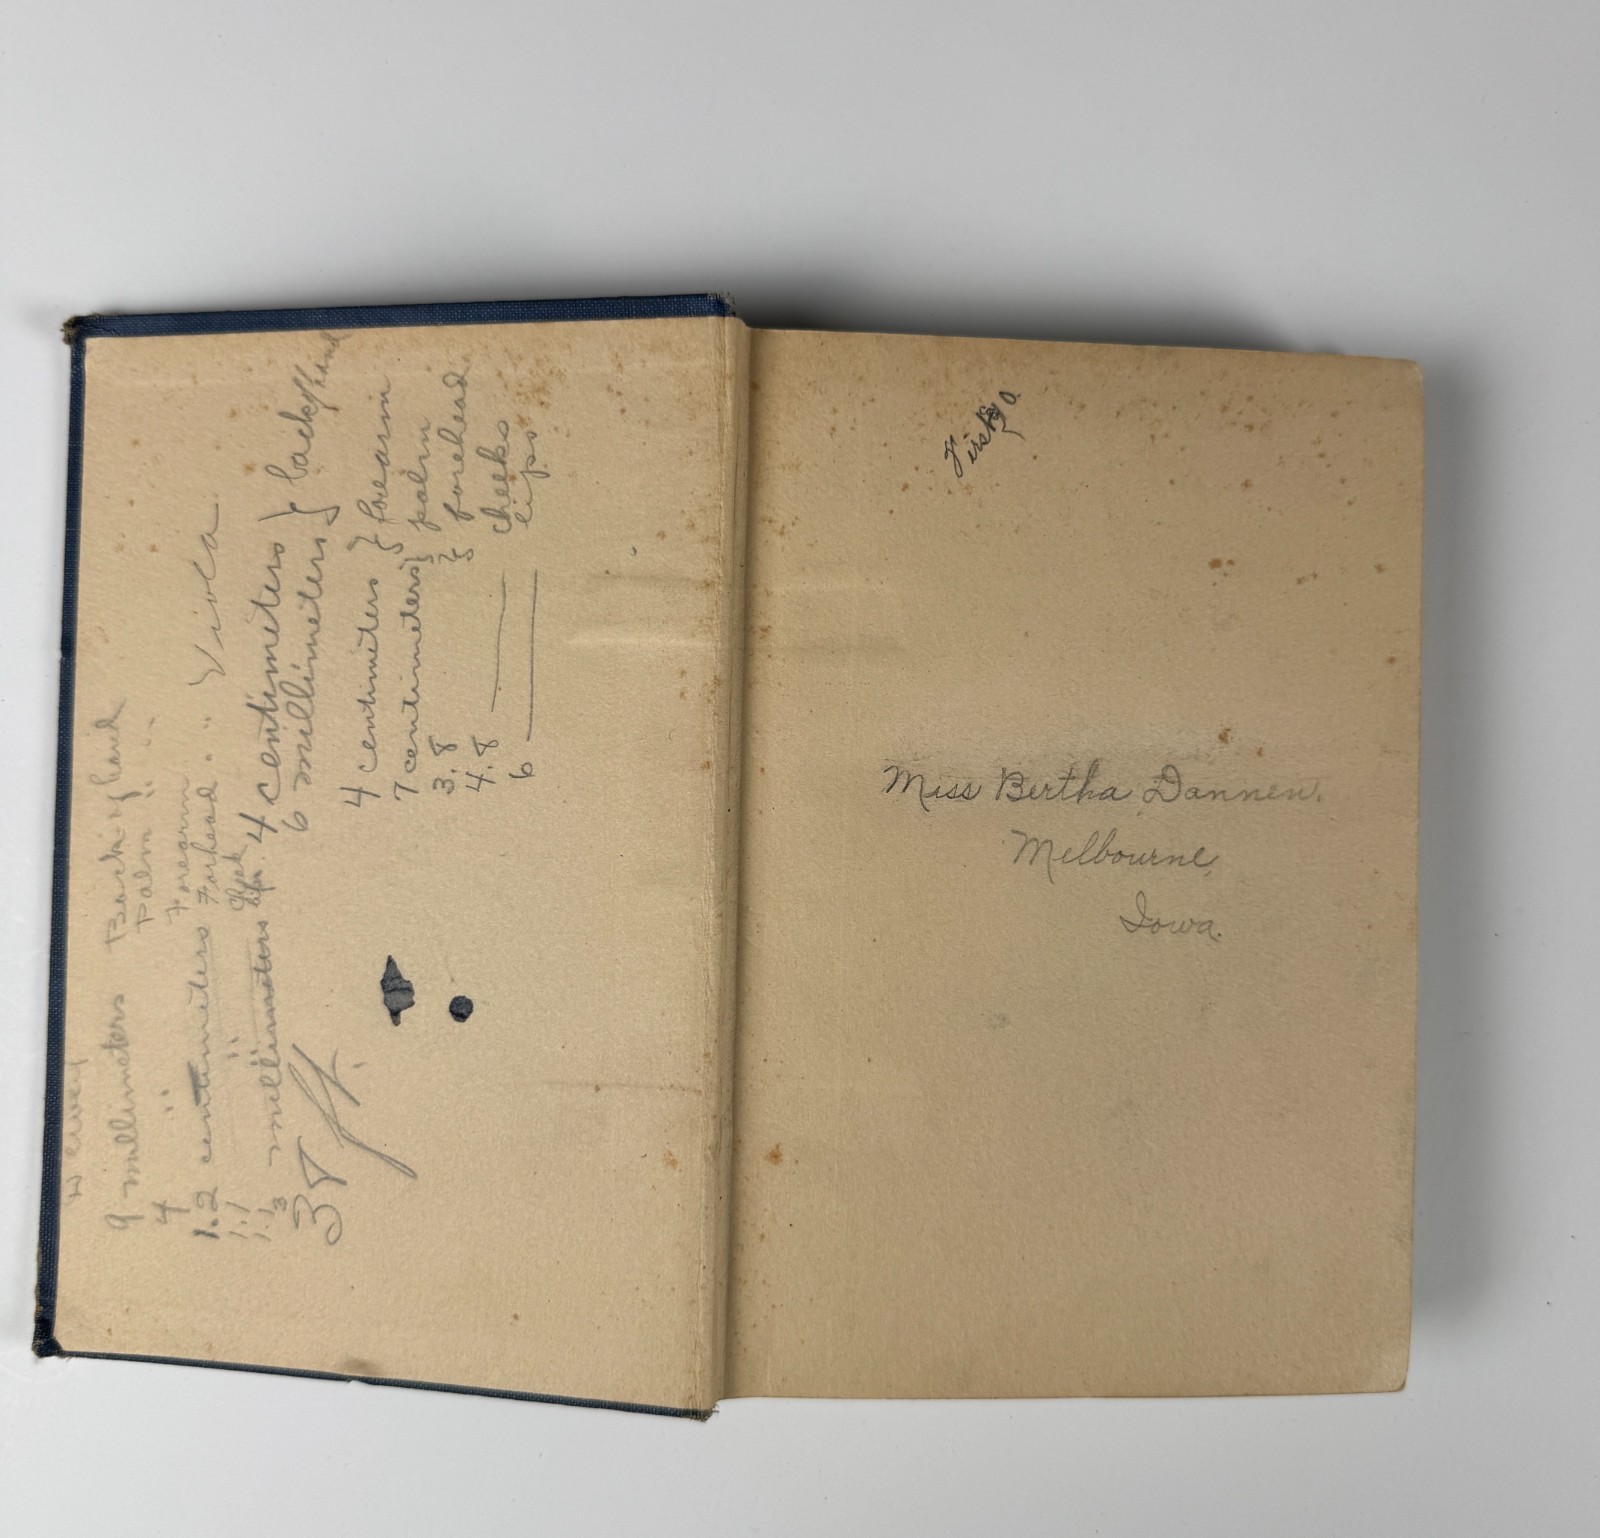 9 millimeters Back of hand
4 " Palm " "
1.2 centimeters Forearm
1.1 " Forhead " "
1.1 " Cheek
3 millimeters lips
Viola
4 centimeters } back of hand
6 millimeters
4 centimeters } forearm
7 centimeters } palm
3.8 } forehead
4.8 — cheeks
6 — lips
Miss Bertha Dannen.
Melbourne,
Iowa.